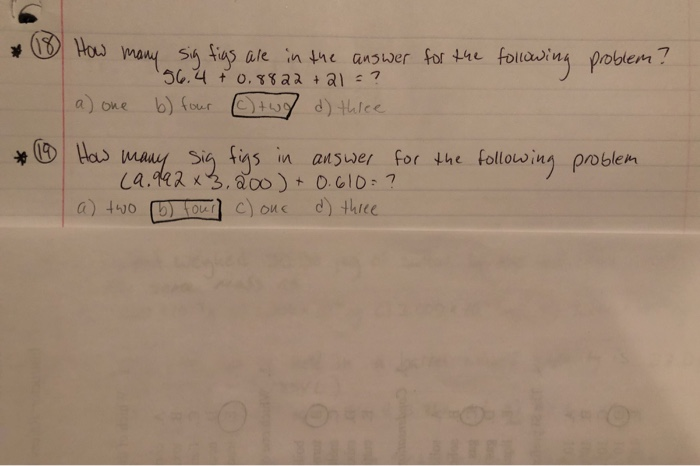 * 18 How many sig figs are in the answer for the following problem?
56.4 + 0.8822 + 21 = ?
a) one b) four c) two d) three
* 19 How many sig figs in answer for the following problem
(9.992 x 3.200) + 0.610 = ?
a) two b) four c) one d) three